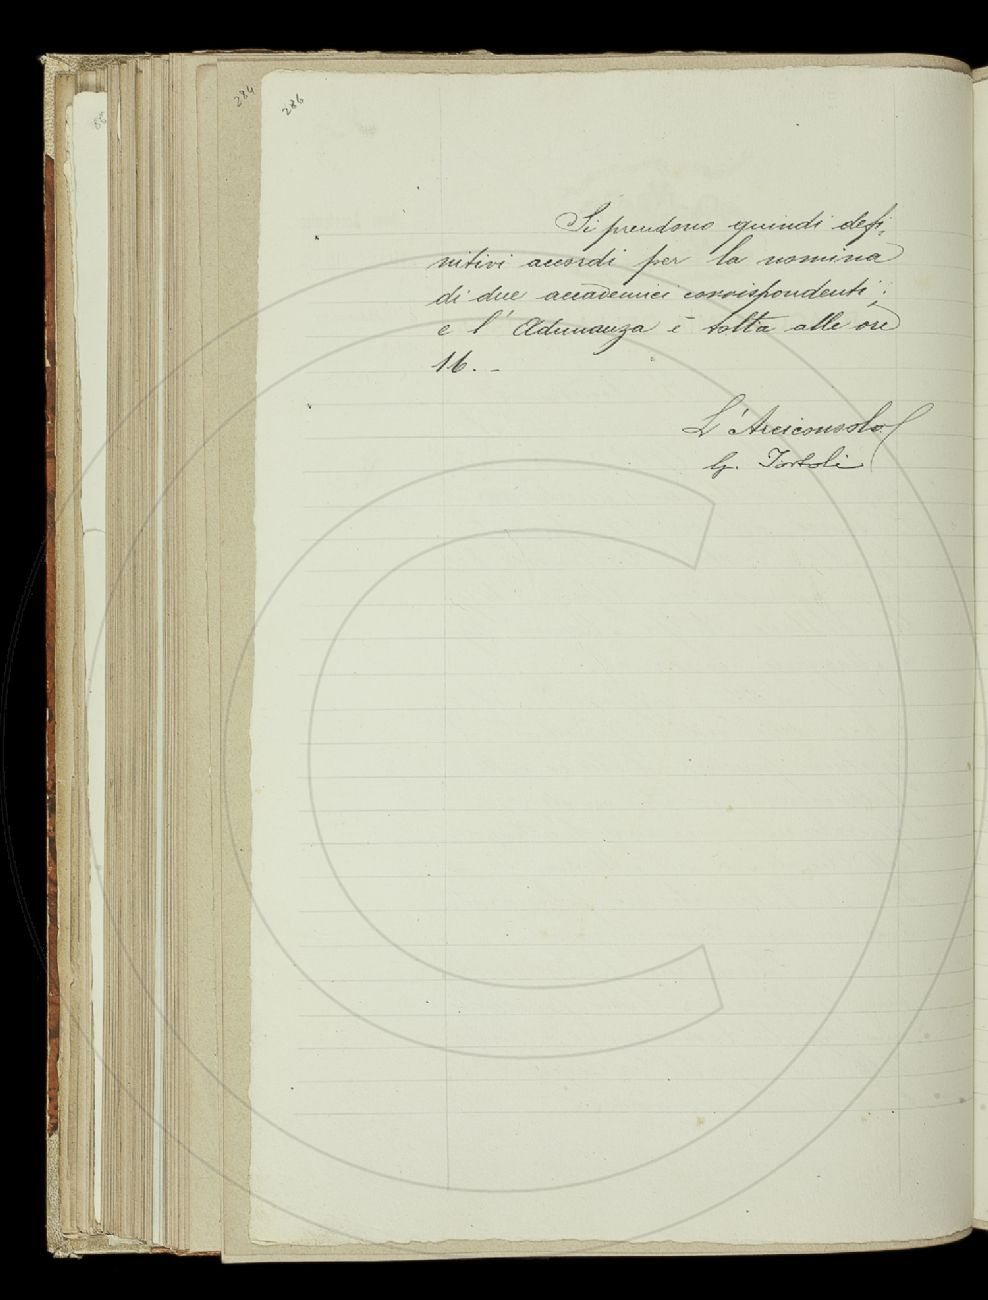 284
286
Si prendono quindi defi-
nitivi accordi per la nomina
di due accademici corrispondenti;
e l'Adunanza è tolta alle ore
16. -
L'Arciconsolo
G. Tortoli